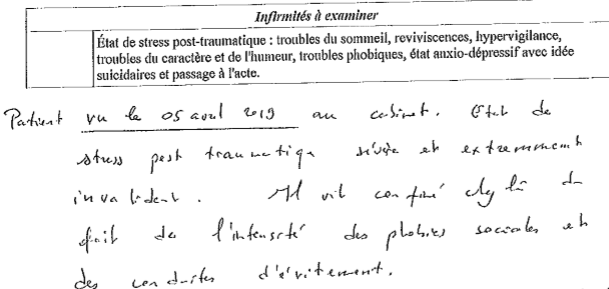 Infirmités à examiner
État de stress post-traumatique : troubles du sommeil, reviviscences, hypervigilance,
troubles du caractère et de l'humeur, troubles phobiques, état anxio-dépressif avec idée
suicidaires et passage à l'acte.
Patient vu le 05 avril 2019 au cabinet. Etat de
stress post traumatique sévère et extremement
invalident. Il vit confiné chez lui du
fait de l'intensité des phobies sociales et
des conduites d'évitement.